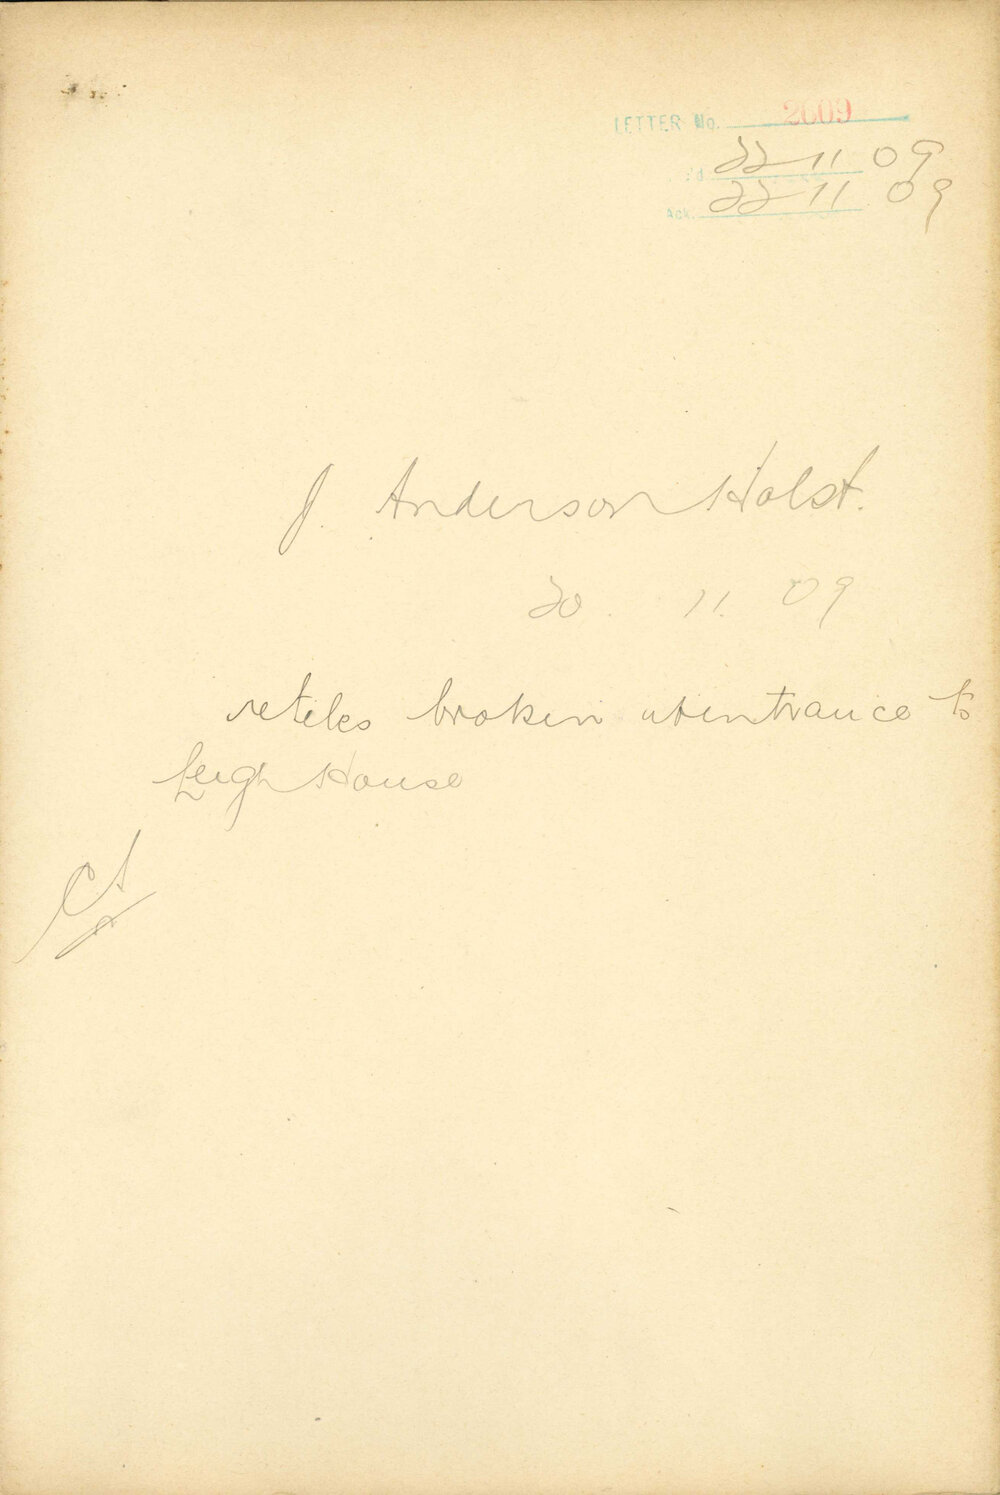 LETTER No. 2609
'd 22 11 09
Ack. 22 11 09
J. Anderson Holst.
20. 11. 09
re tiles broken at entrance to
Leigh House